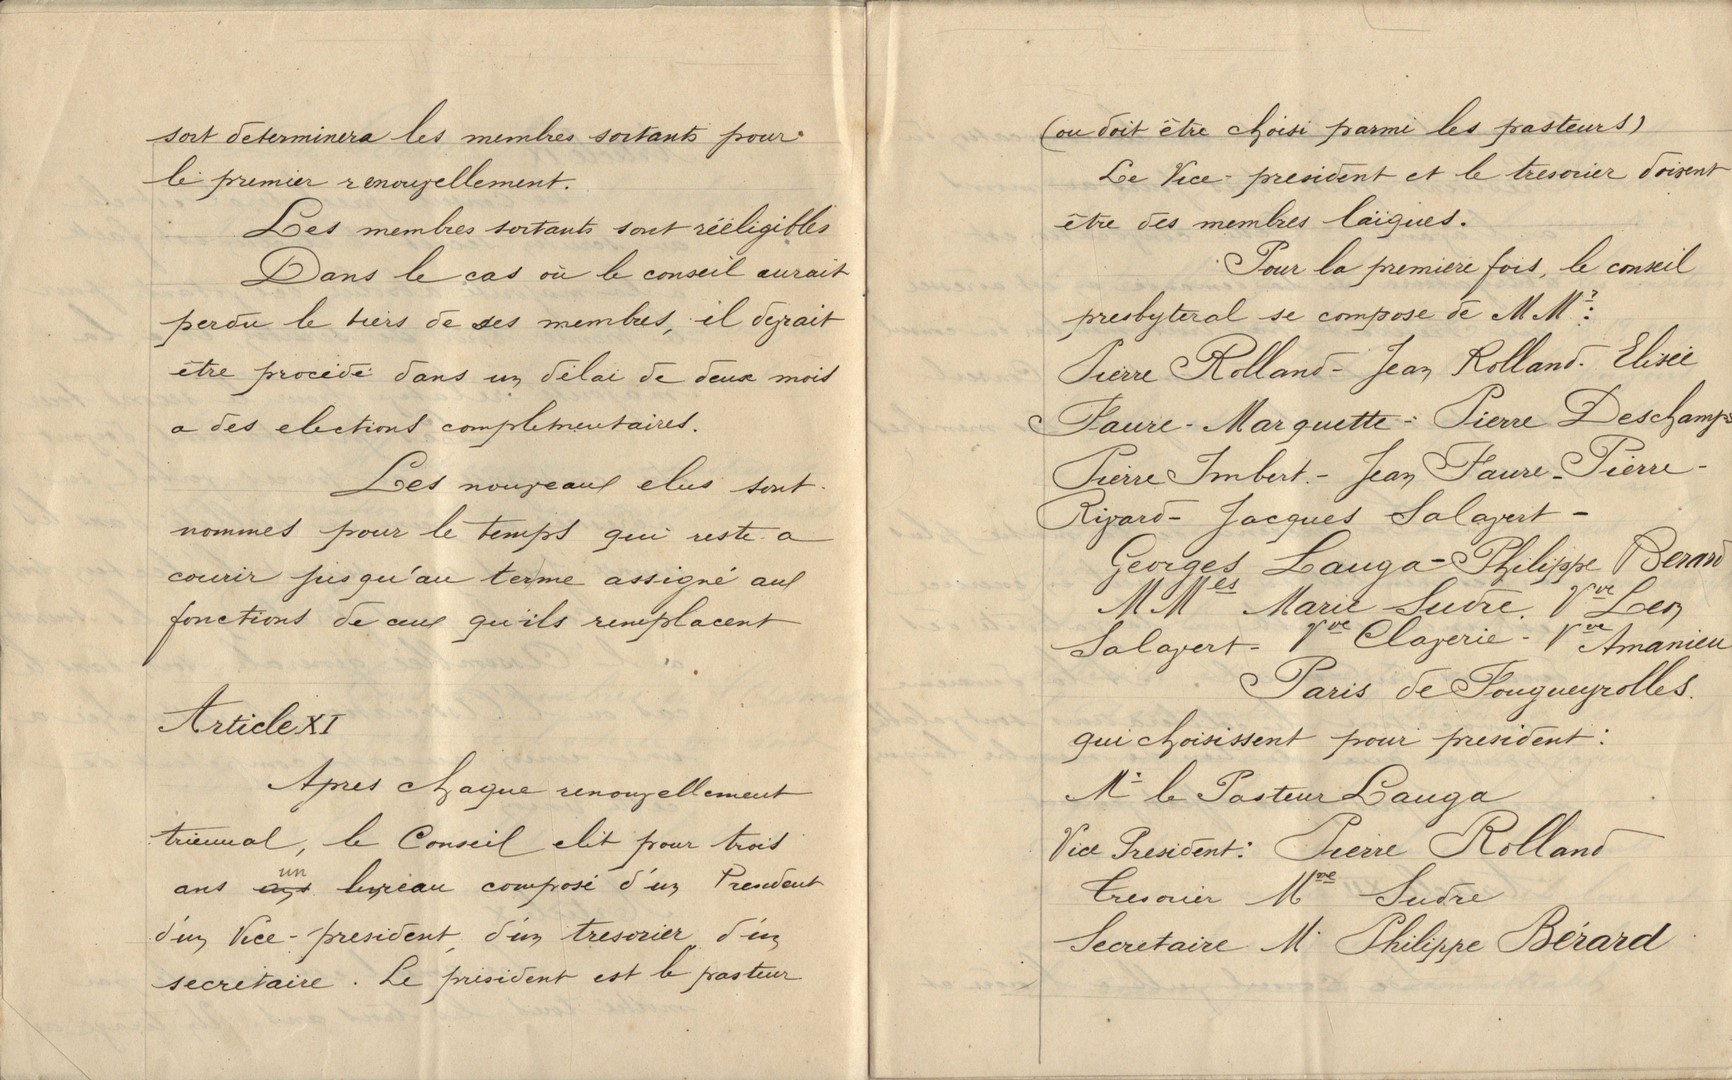 sort determinera les membres sortants pour
le premier renouvellement.
Les membres sortants sont rééligibles
Dans le cas où le conseil aurait
perdu le tiers de ses membres, il devrait
être procédé dans un délai de deux mois
a des elections complementaires.
Les nouveaux elus sont
nommes pour le temps qui reste a
courir jusqu'au terme assigné aux
fonctions de ceux qu'ils remplacent
Article XI
Apres chaque renouvellement
triennal, le Conseil elit pour trois
ans un bureau composé d'un President
d'un Vice-president, d'un tresorier, d'un
secretaire. Le president est le pasteur
(ou doit être choisi parmi les pasteurs)
Le Vice-president et le tresorier doivent
être des membres laïques.
Pour la premiere fois, le conseil
presbyteral se compose de MM.rs:
Pierre Rolland - Jean Rolland. Elisée
Faure - Marquette - Pierre Deschamps
Pierre Imbert. - Jean Faure - Pierre -
Rivard - Jacques Salavert -
Georges Lauga - Philippe Berard
MMes Marie Sudre. Vve Leon
Salavert - Vve Claverie - Vve Amanieu
Paris de Fougueyrolles.
qui choisissent pour president:
Mr le Pasteur Lauga
Vice President: Pierre Rolland
Tresorier Mme Sudre
Secretaire M. Philippe Bérard